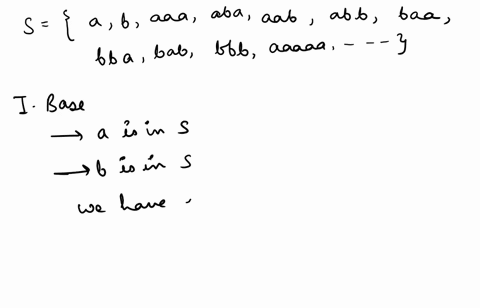 S = { a, b, aaa, aba, aab, abb, baa,
bba, bab, bbb, aaaaa. - - - }
I. Base
→ a is in S
→ b is in S
we have ,